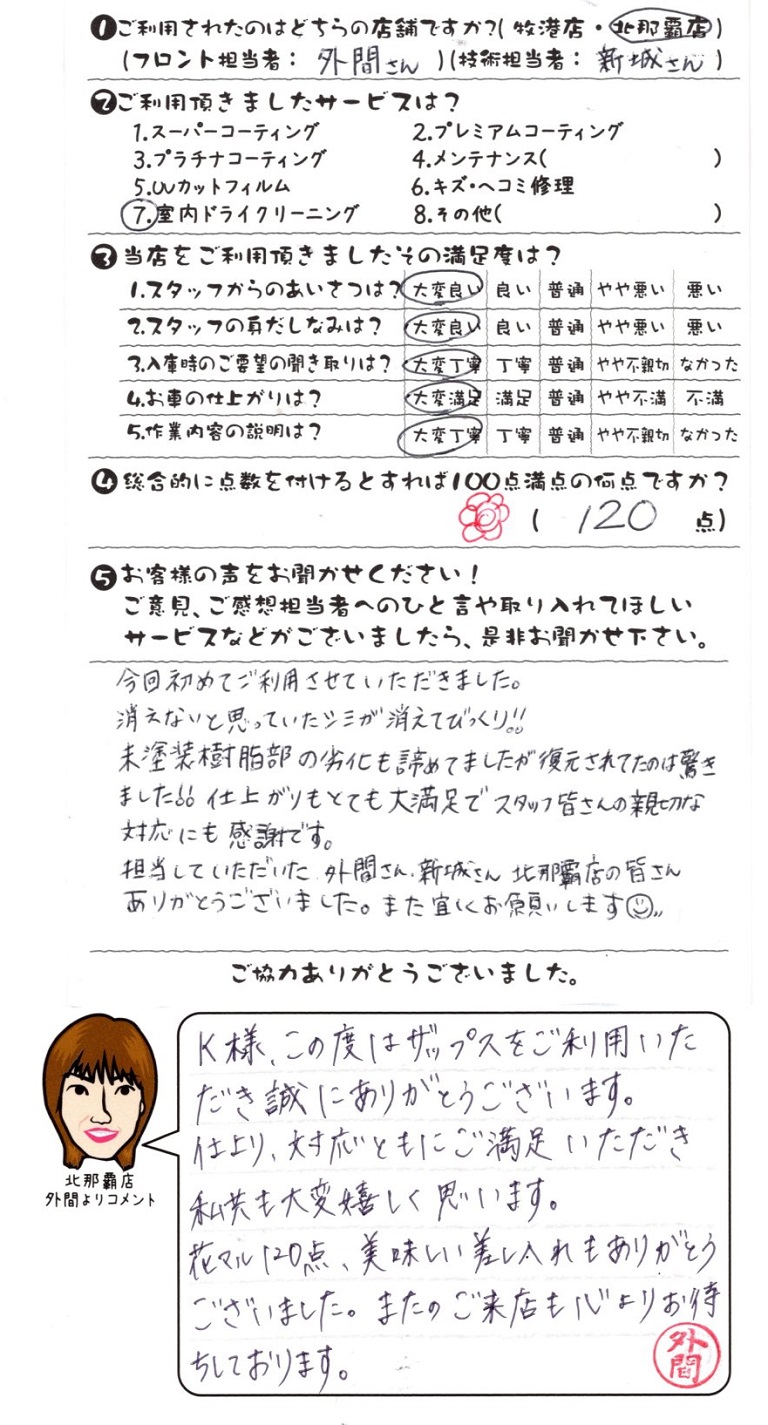 ❶ご利用されたのはどちらの店舗ですか?(牧港店・北那覇店)
(フロント担当者: 外間さん)(技術担当者: 新城さん)
❷ご利用頂きましたサービスは?
1.スーパーコーティング 2.プレミアムコーティング
3.プラチナコーティング 4.メンテナンス( )
5.UVカットフィルム 6.キズ・ヘコミ修理
7.室内ドライクリーニング 8.その他( )
❸当店をご利用頂きましたその満足度は?
1.スタッフからのあいさつは? 大変良い 良い 普通 やや悪い 悪い
2.スタッフの身だしなみは? 大変良い 良い 普通 やや悪い 悪い
3.入庫時のご要望の聞き取りは? 大変丁寧 丁寧 普通 やや不親切 なかった
4.お車の仕上がりは? 大変満足 満足 普通 やや不満 不満
5.作業内容の説明は? 大変丁寧 丁寧 普通 やや不親切 なかった
❹総合的に点数を付けるとすれば100点満点の何点ですか?
( 120 点)
❺お客様の声をお聞かせください!
ご意見、ご感想担当者へのひと言や取り入れてほしい
サービスなどがございましたら、是非お聞かせ下さい。
今回初めてご利用させていただきました。
消えないと思っていたシミが消えてびっくり!!
未塗装樹脂部の劣化も諦めてましたが復元されてたのは驚き
ました!! 仕上がりもとても大満足でスタッフ皆さんの親切な
対応にも感謝です。
担当していただいた 外間さん、新城さん 北那覇店の皆さん
ありがとうございました。また宜しくお願いします☺
ご協力ありがとうございました。
K様、この度はザップスをご利用いた
だき誠にありがとうございます。
仕上り、対応ともにご満足いただき
私共も大変嬉しく思います。
花マル120点、美味しい差し入れもありがとう
ございました。またのご来店も心よりお待
ちしております。
外間
北那覇店
外間よりコメント